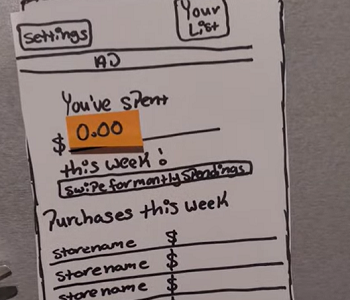 Settings
Your
List
AD
You've spent
$ 0.00
this week!
swipe for montly spendings
Purchases this week
storename $
storename $
storename $